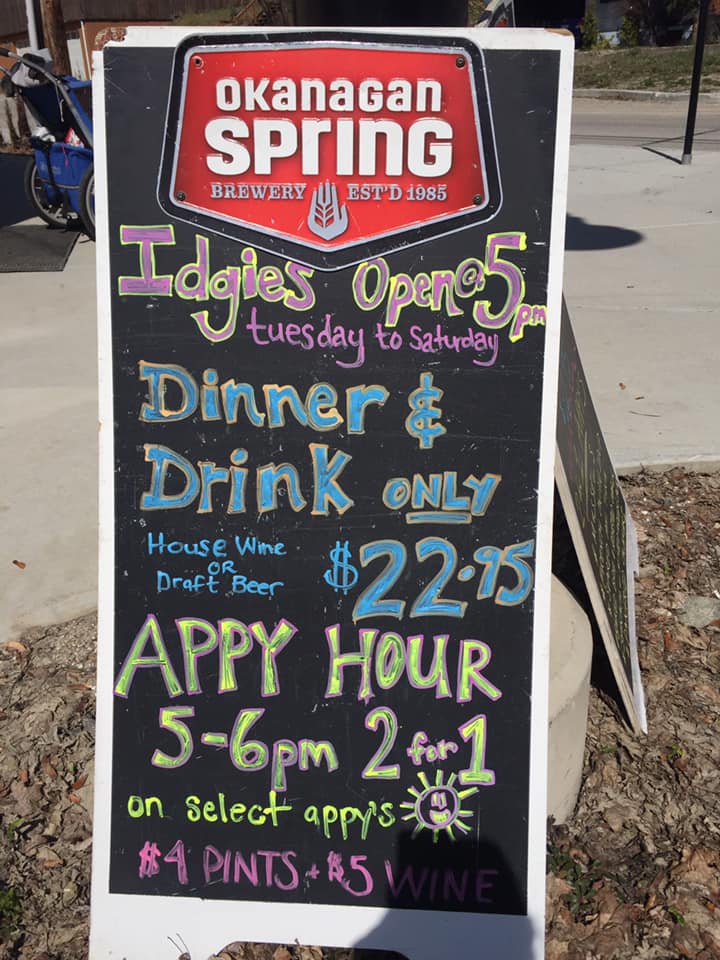 OKANAGAN
SPRING
BREWERY EST'D 1985
Idgies Open@5pm
tuesday to Saturday
Dinner &
Drink ONLY
House Wine
OR
Draft Beer
$22.95
APPY HOUR
5-6pm 2 for 1
on select appy's
$4 PINTS + $5 WINE